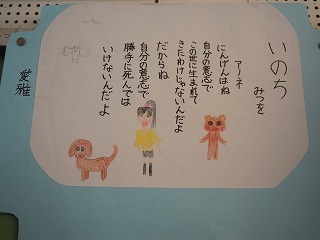 いのち
みつを
アーネ
にんげんはね
自分の意志で
この世に生まれて
きたわけじゃないんだよ
だからね
自分の意志で
勝手に死んでは
いけないんだよ
愛雅